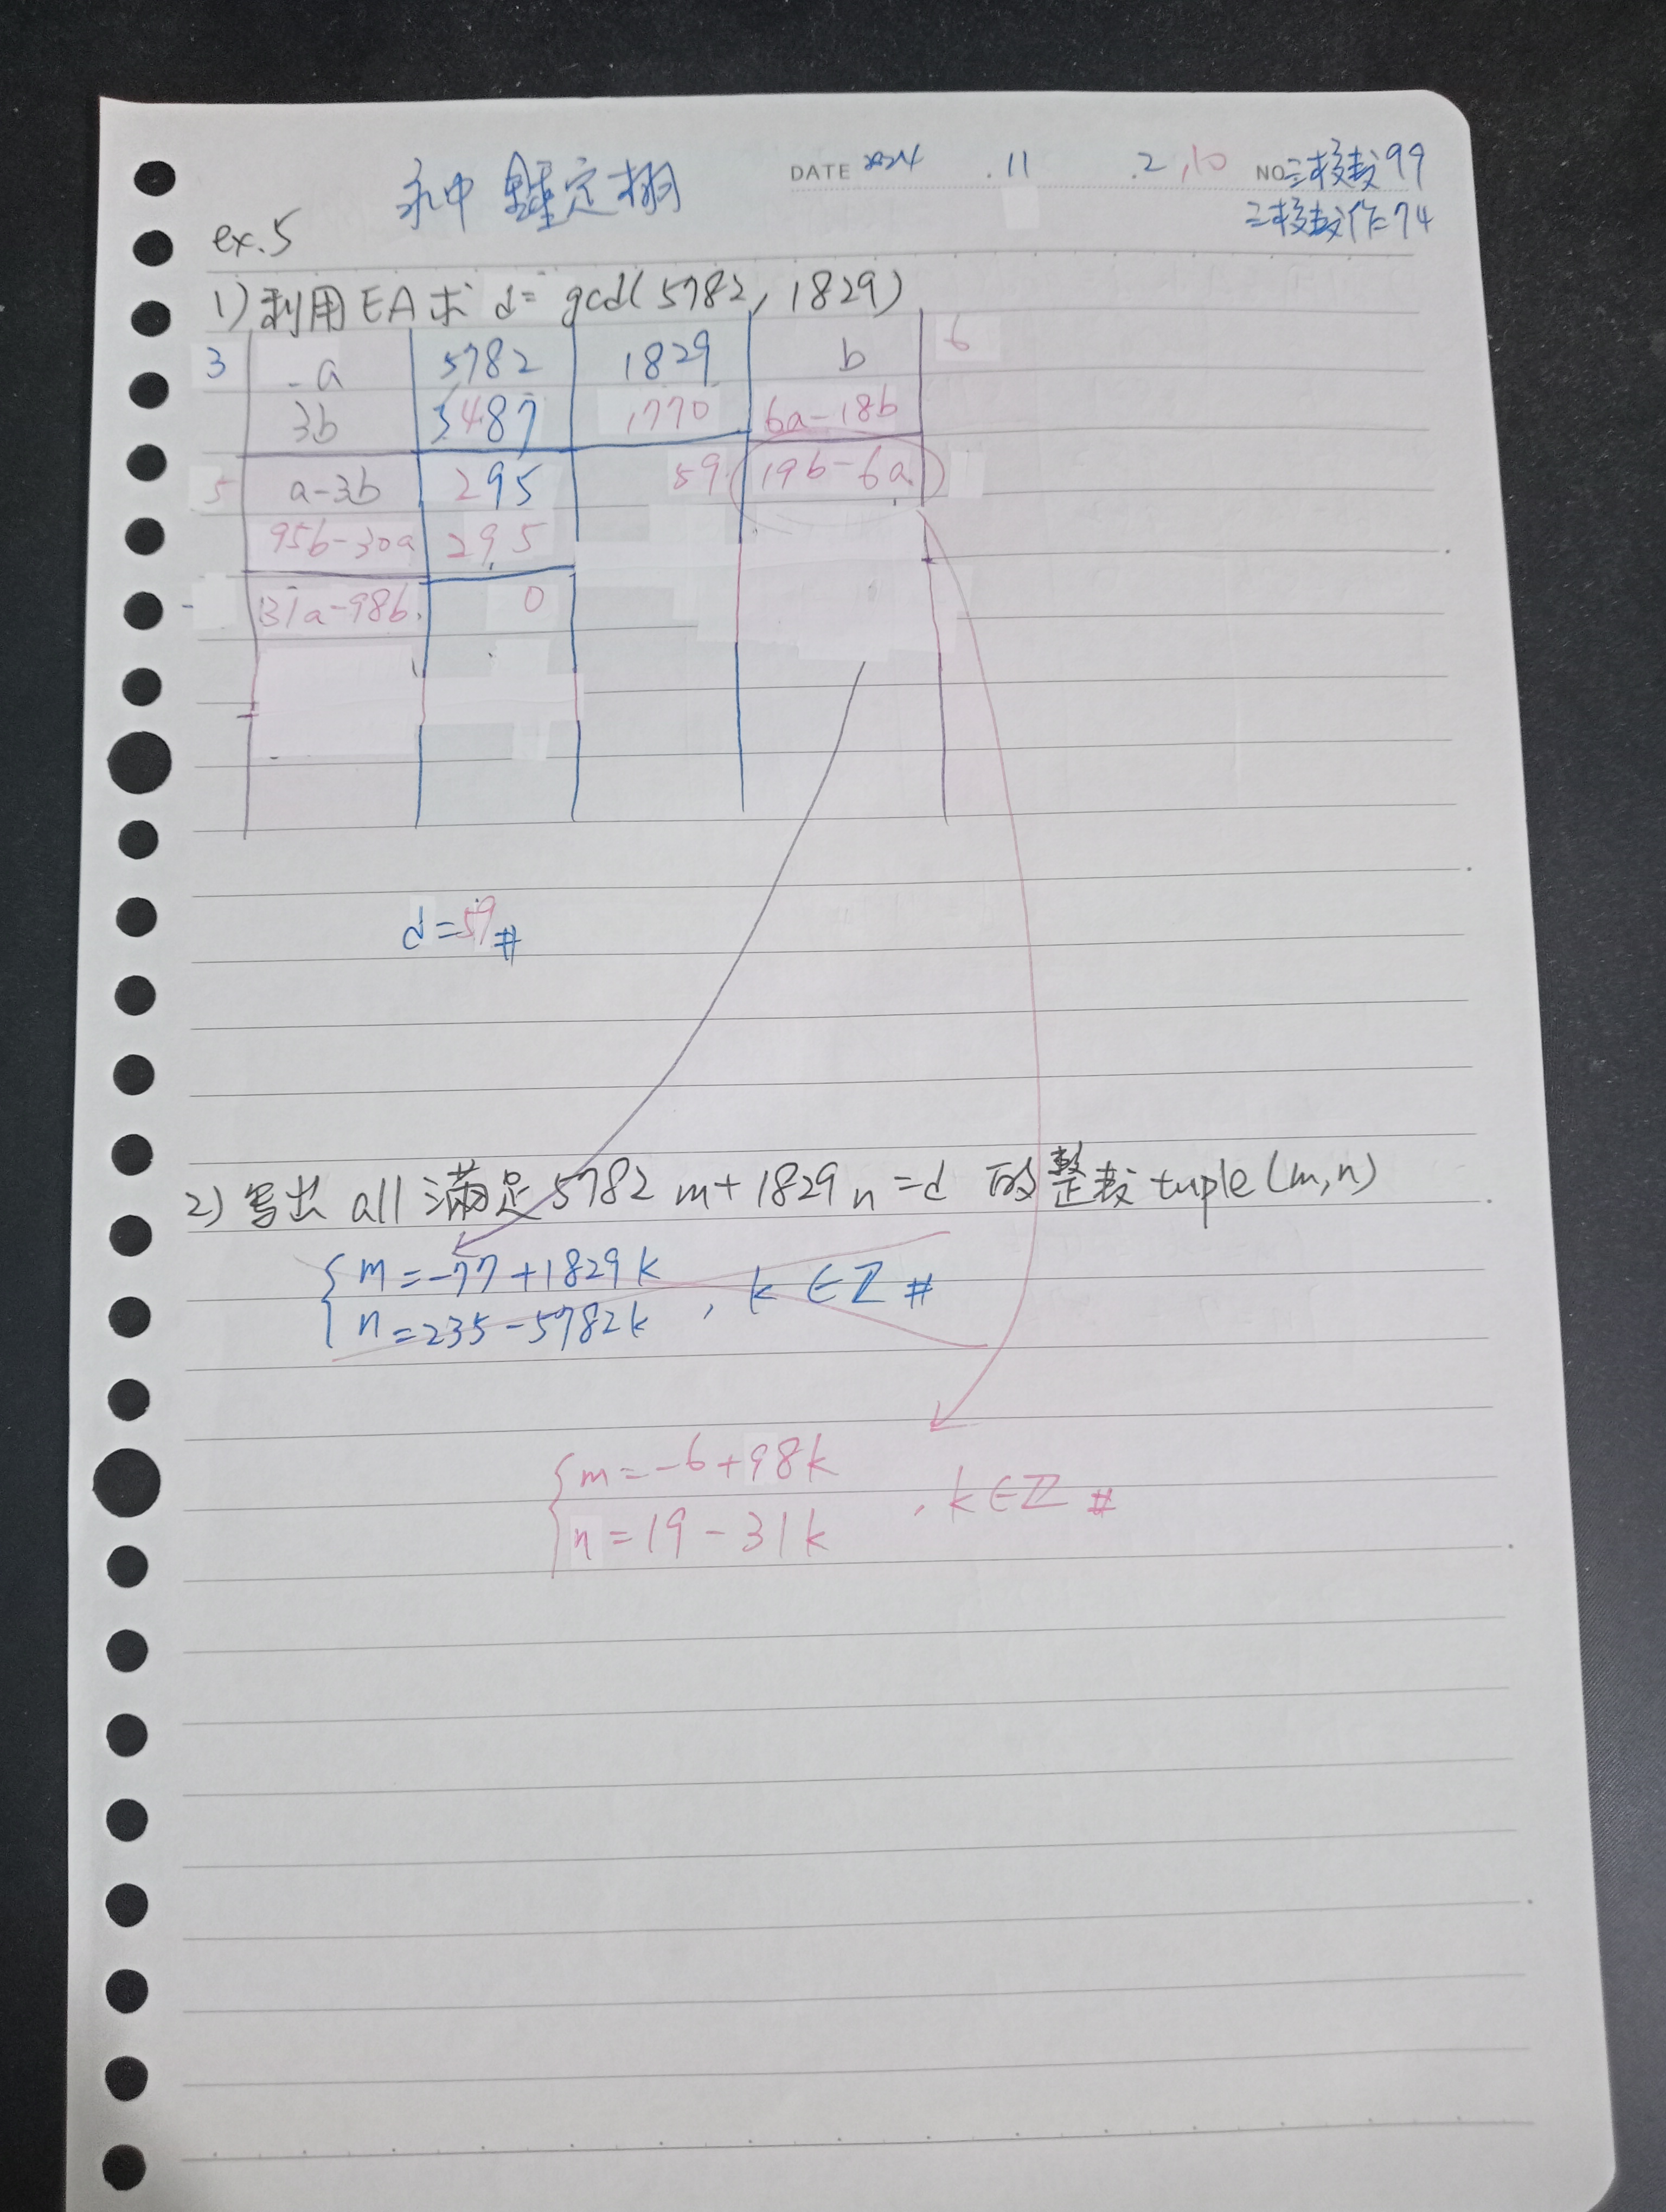 永中 鍾定栩 DATE 2024 .11 .2,10 NO 三移数99
三移数作74
ex.5
1) 利用EA求 d= gcd(5782, 1829)
3 a 5782 1829 b 6
3b 5487 1770 6a-18b
5 a-3b 295 59 19b-6a
95b-30a 295
31a-98b 0
d=59#
2) 写出 all 滿足 5782 m+1829 n=d 的整数 tuple(m,n)
m=-77+1829k
n=235-5782k , k∈Z #
m=-6+98k
n=19-31k , k∈Z #